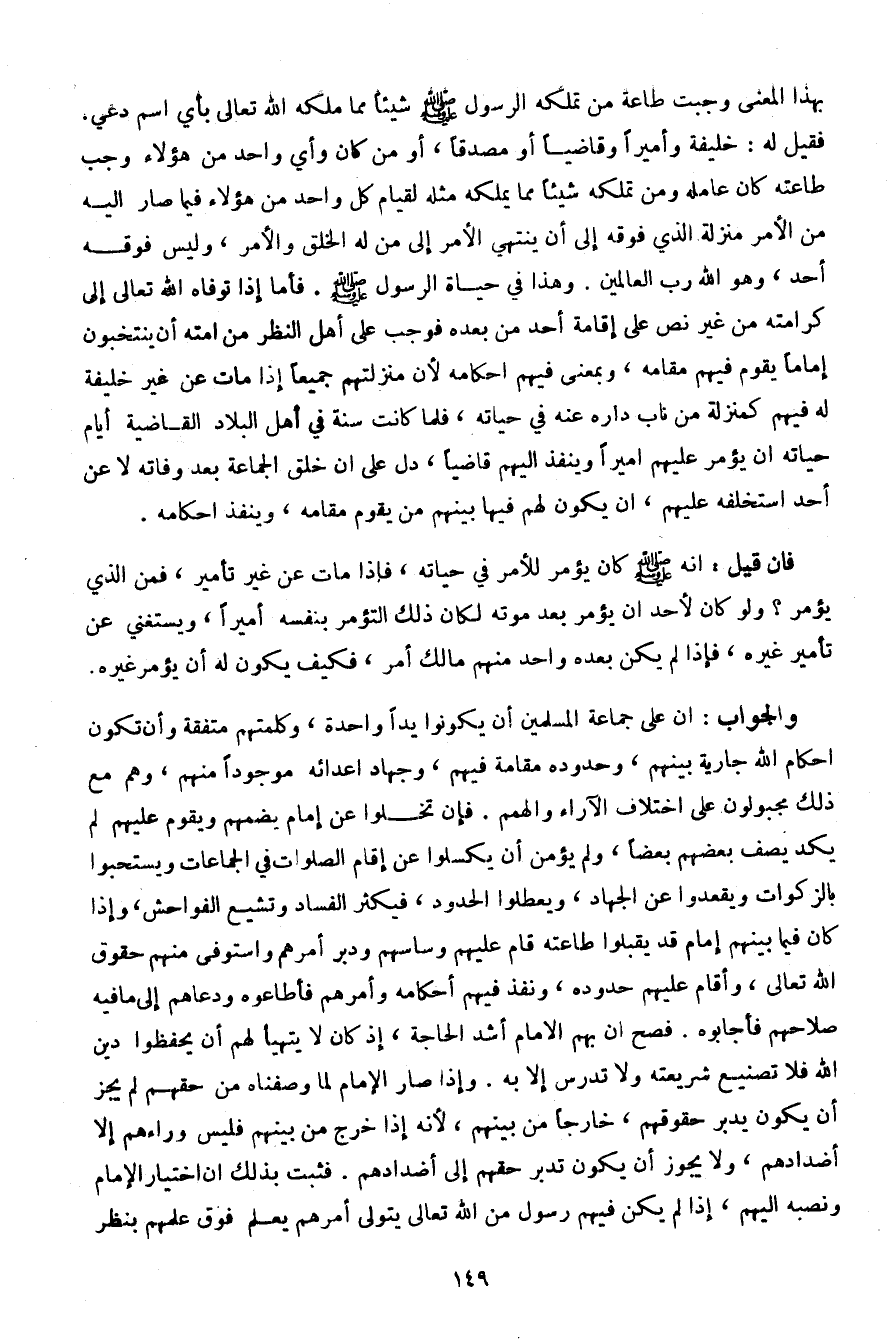 بهذا المعنى وجبت طاعة من تملكه الرسول ﷺ شيئاً مما ملكه الله تعالى بأي اسم دعي،
فقيل له : خليفة وأميراً وقاضيـاً أو مصدقاً ، أو من كان وأي واحد من هؤلاء وجب
طاعته كان عامله ومن تملكه شيئاً مما يملكه مثله لقيام كل واحد من هؤلاء فيما صار اليــه
من الأمر منزلة الذي فوقه إلى أن ينتهي الأمر إلى من له الخلق والأمر ، وليس فوقـــه
أحد ، وهو الله رب العالمين . وهذا في حيـاة الرسول ﷺ . فأما إذا توفاه الله تعالى إلى
كرامته من غير نص على إقامة أحد من بعده فوجب على أهل النظر من امته أن ينتخبون
إماماً يقوم فيهم مقامه ، وبمعنى فيهم احكامه لأن منزلتهم جميعاً إذا مات عن غير خليفة
له فيهم كمنزلة من ناب داره عنه في حياته ، فلما كانت سنة في أهل البلاد القـاضية أيام
حياته ان يؤمر عليهم اميراً وينفذ اليهم قاضياً ، دل على ان خلق الجماعة بعد وفاته لا عن
أحد استخلفه عليهم ، ان يكون لهم فيها بينهم من يقوم مقامه ، وينفذ احكامه .
فان قيل : انه ﷺ كان يؤمر للأمر في حياته ، فإذا مات عن غير تأمير ، فمن الذي
يؤمر ؟ ولو كان لأحد ان يؤمر بعد موته لكان ذلك التؤمر بنفسه أميراً ، ويستغني عن
تأمير غيره ، فإذا لم يكن بعده واحد منهم مالك أمر ، فكيف يكون له أن يؤمر غيره.
والجواب : ان على جماعة المسلمين أن يكونوا يداً واحدة ، وكلمتهم متفقة وأن تكون
احكام الله جارية بينهم ، وحدوده مقامة فيهم ، وجهاد اعدائه موجوداً منهم ، وهم مع
ذلك مجبولون على اختلاف الآراء والهمم . فإن تخـــلوا عن إمام يضمهم ويقوم عليهم لم
يكد يصف بعضهم بعضاً ، ولم يؤمن أن يكسلوا عن إقام الصلوات في الجماعات ويستحبوا
بالزكوات ويقعدوا عن الجهاد ، ويعطلوا الحدود ، فيكثر الفساد وتشيع الفواحش، وإذا
كان فيما بينهم إمام قد يقبلوا طاعته قام عليهم وساسهم ودبر أمرهم واستوفى منهم حقوق
الله تعالى ، وأقام عليهم حدوده ، ونفذ فيهم أحكامه وأمرهم فأطاعوه ودعاهم إلى مافيه
صلاحهم فأجابوه . فصح ان بهم الامام أشد الحاجة ، إذ كان لا يتهيأ لهم أن يحفظوا دين
الله فلا تصنيـع شريعته ولا تدرس إلا به . وإذا صار الإمام لما وصفناه من حقهـم لم يجز
أن يكون يدبر حقوقهم ، خارجاً من بينهم ، لأنه إذا خرج من بينهم فليس وراءهم إلا
أضدادهم ، ولا يجوز أن يكون تدبر حقهم إلى أضدادهم . فثبت بذلك ان اختيار الإمام
ونصبه اليهم ، إذا لم يكن فيهم رسول من الله تعالى يتولى أمرهم يعـلم فوق علمهم بنظر
١٤٩